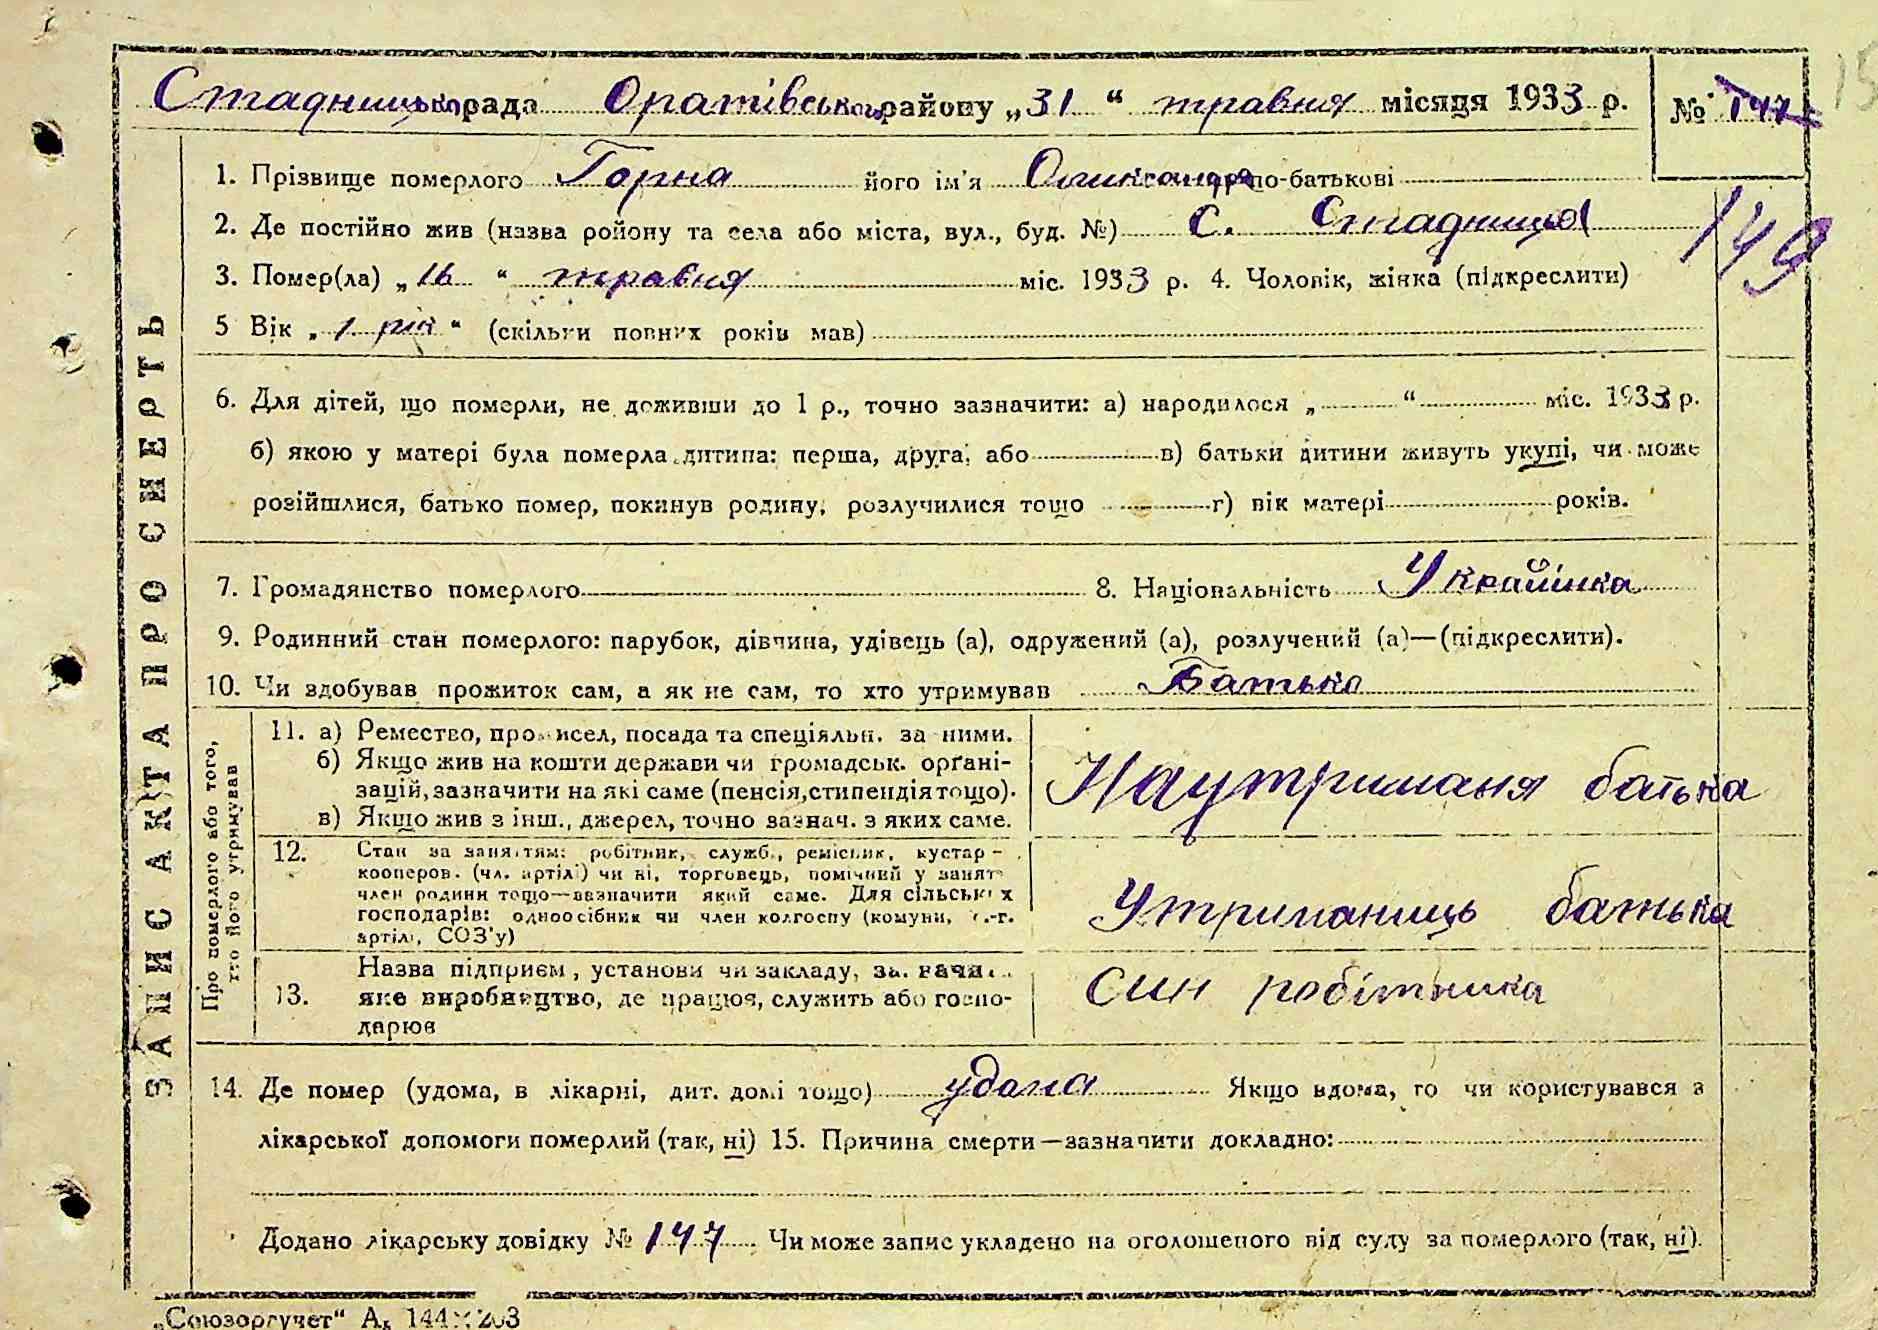 Стадницька рада Оратівського району „31“ травня місяця 1933 р. № 147
149
1. Прізвище померлого Горна його ім'я Олександра по-батькові
2. Де постійно жив (назва ройону та села або міста, вул., буд. №) С. Стадниця
3. Помер(ла) „16“ травня міс. 1933 р. 4. Чоловік, жінка (підкреслити)
5 Вік „1 рік“ (скільки повних років мав)
6. Для дітей, що померли, не доживши до 1 р., точно зазначити: а) народилося „ “ міс. 1933 р.
б) якою у матері була померла дитина: перша, друга, або в) батьки дитини живуть укупі, чи може
розійшлися, батько помер, покинув родину, розлучилися тощо г) вік матері років.
7. Громадянство померлого 8. Національність Українка
9. Родинний стан померлого: парубок, дівчина, удівець (а), одружений (а), розлучений (а)—(підкреслити).
10. Чи здобував прожиток сам, а як не сам, то хто утримував Батько
ЗАПИС АКТА ПРО СМЕРТЬ
Про померлого або того, хто його утримував
11. а) Ремество, промисел, посада та спеціяльн. за ними.
б) Якщо жив на кошти держави чи громадськ. орґані-
зацій, зазначити на які саме (пенсія, стипендія тощо).
в) Якщо жив з інш., джерел, точно зазнач. з яких саме.
На утриманя батька
12. Стан за заняттям: робітник, служб., ремісник, кустар -
кооперов. (чл. артілі) чи ні, торговець, помічний у занятт
член родини тощо—зазначити який саме. Для сільських
господарів: одноосібник чи член колгоспу (комуни, с.-г.
артілі, СОЗ'у)
Утриманиць батька
13. Назва підприєм, установи чи закладу, зазначи
яке виробництво, де працює, служить або госпо-
дарює
син робітника
14. Де помер (удома, в лікарні, дит. домі тощо) удома Якщо вдома, то чи користувався з
лікарської допомоги померлий (так, ні) 15. Причина смерти—зазначити докладно:
Додано лікарську довідку № 147 Чи може запис укладено на оголошеного від суду за померлого (так, ні).
„Союзоргучет“